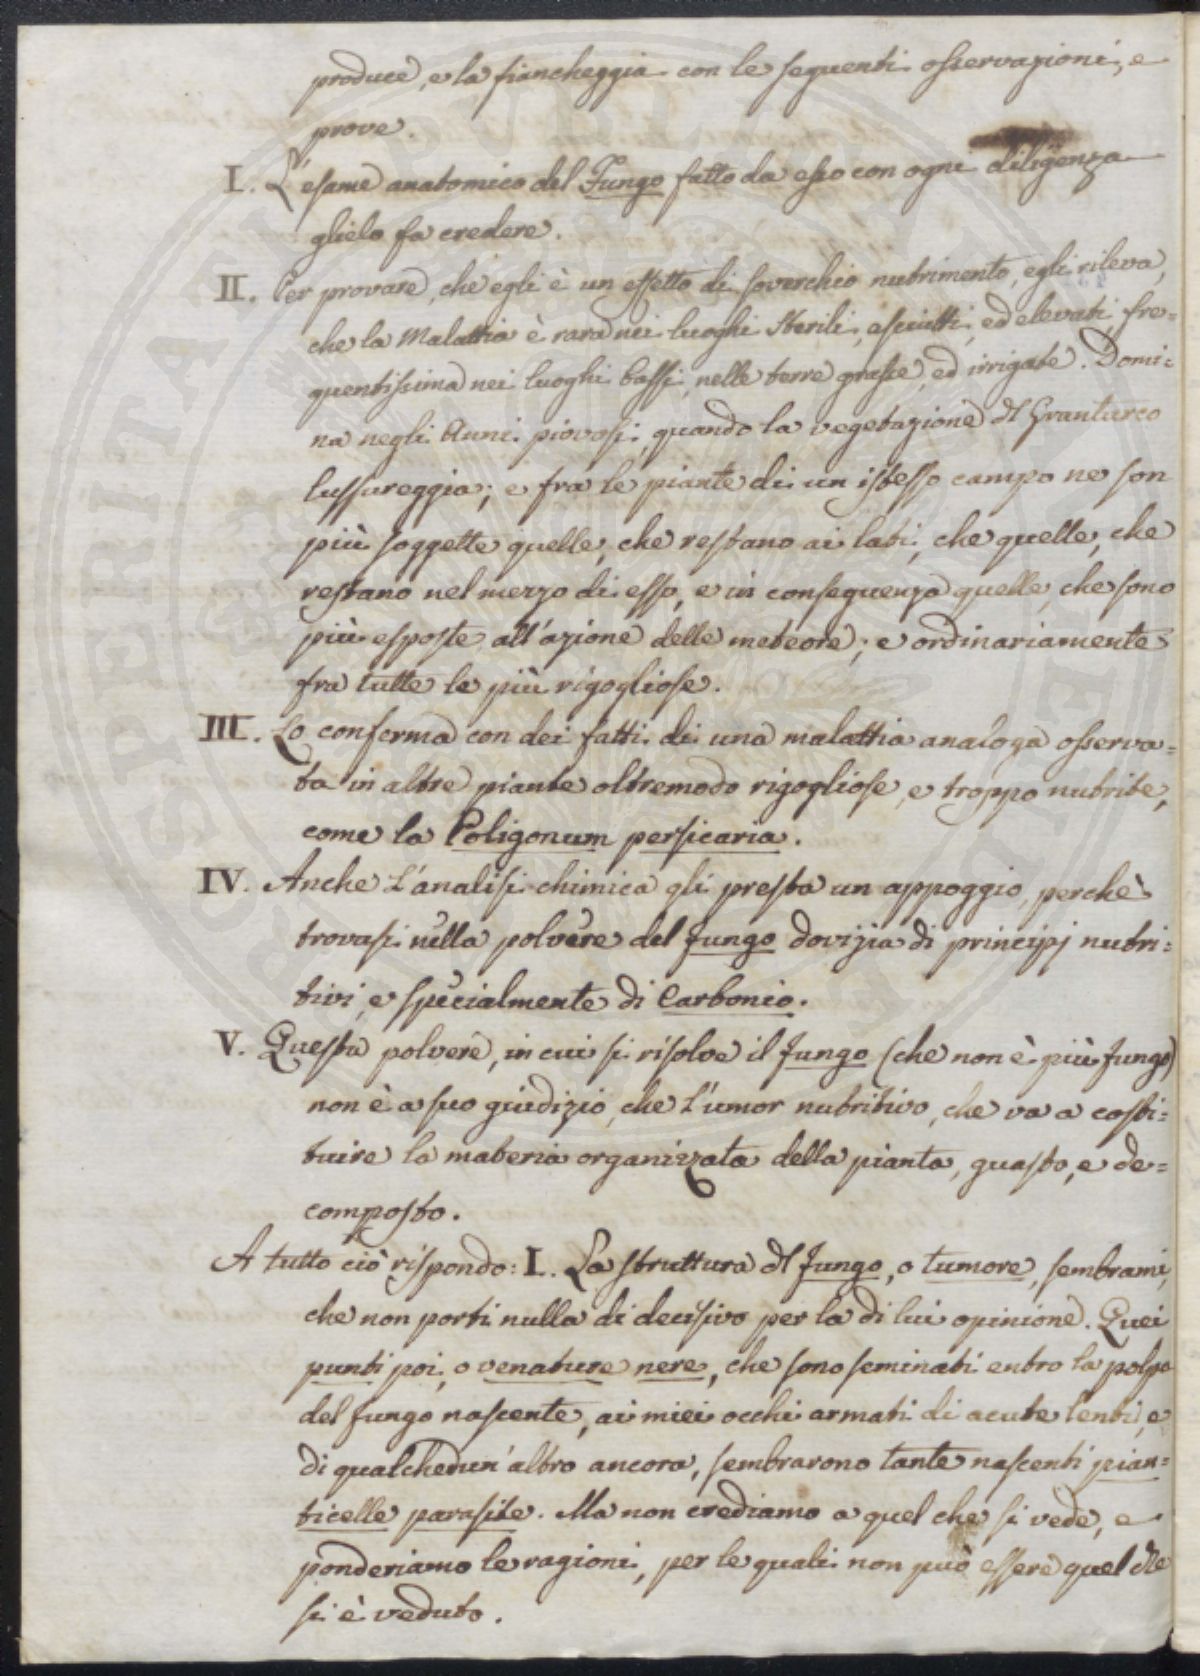 produce, e la fiancheggia con le seguenti osservazioni, e
prove.
I. L'esame anatomico del Fungo fatto da esso con ogni diligenza
glielo fa credere.
II. Per provare, che egli è un effetto di soverchio nutrimento, egli rileva,
che la Malattia è rara nei luoghi sterili, asciutti, ed elevati, fre=
quentissima nei luoghi bassi, nelle terre grasse, ed irrigate. Domi=
na negli Anni piovosi, quando la vegetazione dl Granturco
lussureggia; e fra le piante di un istesso campo ne son
più soggette quelle, che restano ai lati, che quelle, che
restano nel mezzo di esso, e in conseguenza quelle, che sono
più esposte all'azione delle meteore; e ordinariamente
fra tutte le più rigogliose.
III. Lo conferma con dei fatti di una malattia analoga osserva=
ta in altre piante oltremodo rigogliose, e troppo nutrite,
come la Poligonum persicaria.
IV. Anche l'analisi chimica gli presta un appoggio, perchè
trovasi nella polvere del fungo dovizia di principj nutri=
tivi, e specialmente di Carbonio.
V. Questa polvere, in cui si risolve il fungo (che non è più fungo)
non è a suo giudizio, che l'umor nutritivo, che va a costi=
tuire la materia organizzata della pianta, guasto, e de=
composto.
A tutto ciò rispondo: I. La struttura dl fungo, o tumore, sembrami,
che non porti nulla di decisivo per la di lui opinione. Quei
punti poi, o venature nere, che sono seminati entro la polpa
del fungo nascente, ai miei occhi armati di acute lenti, e
di qualchedun'altro ancora, sembrarono tante nascenti pian=
ticelle parasite. Ma non crediamo a quel che si vede, e
ponderiamo le ragioni, per le quali non può essere quel che
si è veduto.
PROSPERITATI PUBLICAE